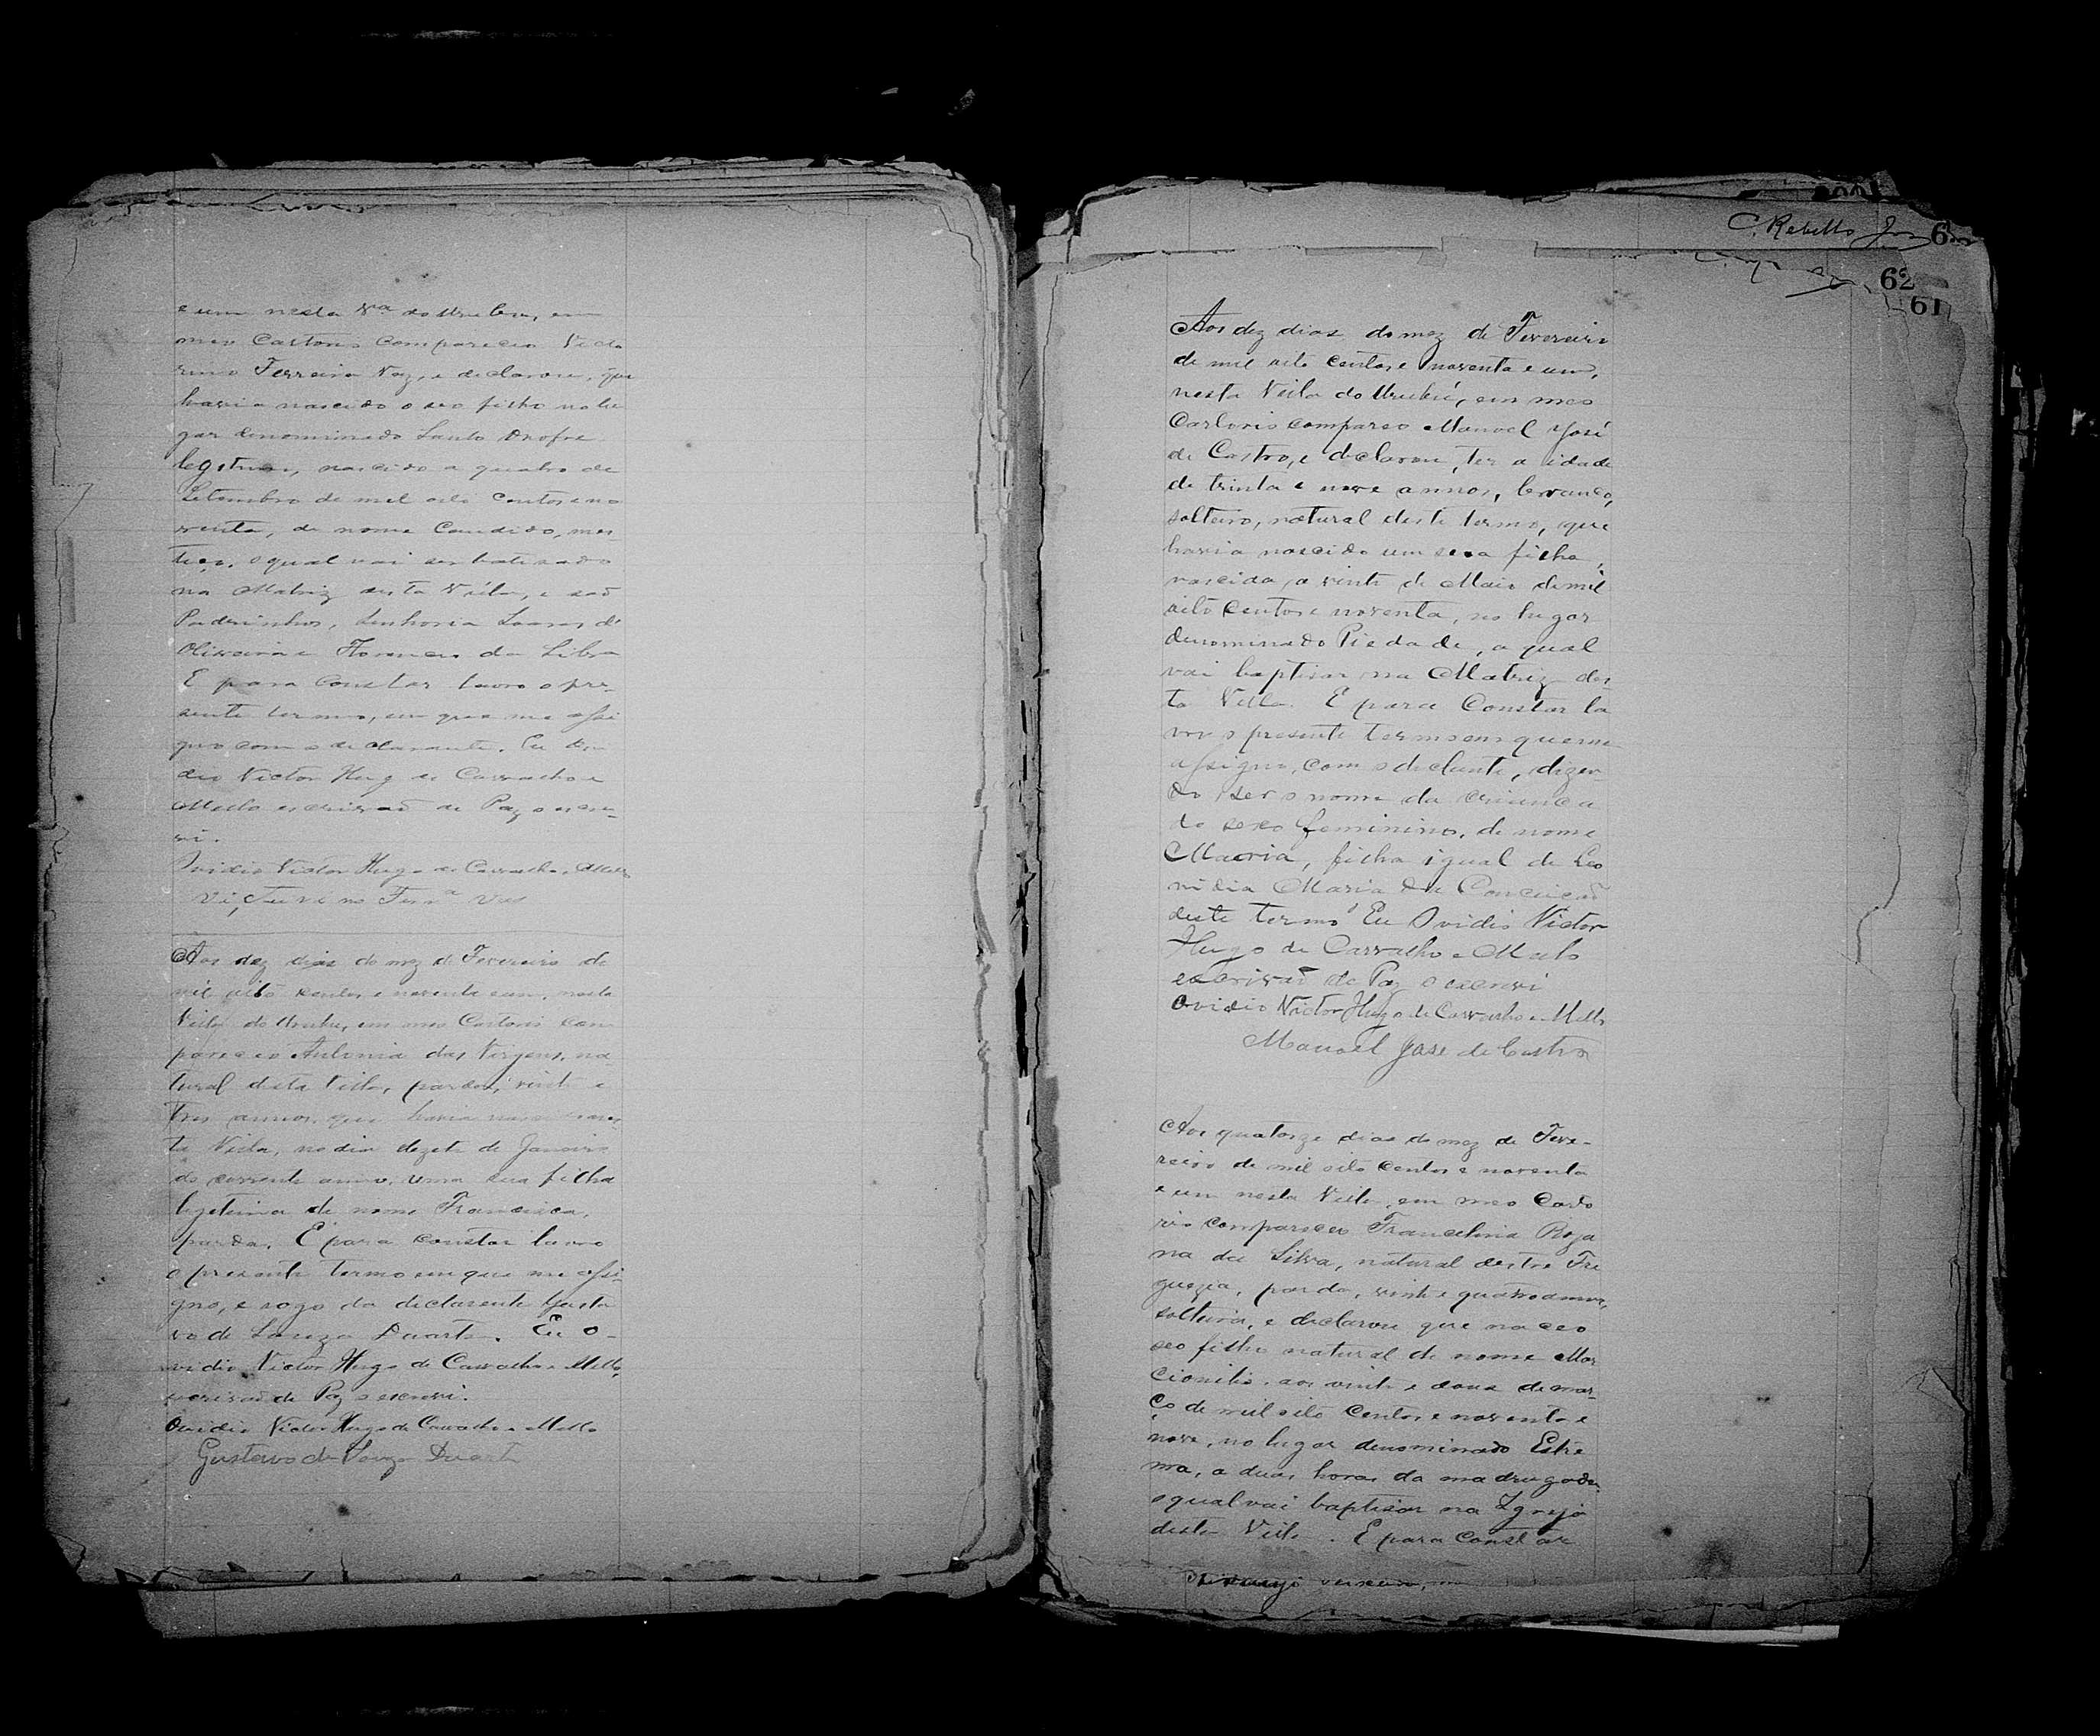 e um nesta Vª do Urubu, em
meo Cartorio compareceo Victo
rino Ferreira Vaz, e declarou, que
havia nascido o seo filho no lu
gar denominado Santo Onofre
legitimo, nascido a quatro de
Setembro de mil oito centos e no
venta, de nome Candido, mes
tiço, o qual vai ser batisado
na Matriz desta Villa, e saõ
Padrinhos, Soares de
Oliveira e da Silva
E para constar lavro o pre-
sente termo, em que me assi
gno com o declarante. Eu Ovi
dio Victor Hugo de Carvalho e
Mello escrivaõ de Paz o escre-
vi.
Ovidio Victor Hugo de Carvalho e Mello
Victurino Ferrª Vas
Aos dez dias do mez de Fevereiro de
mil oito centos e noventa e um, nesta
Villa do Urubu, em meo Cartorio com
pareceo Antonia das Virgens, na
tural desta Villa, parda, vinte e
tres annos, que havia nascido nes
ta Villa, no dia dezete de Janeiro
do corrente anno, uma sua filha
legitima de nome Francisca,
parda. E para constar lavro
o presente termo em que me assi-
gno, e rogo da declarante Gusta
vo de Souza Duarte. Eu O-
vidio Victor Hugo de Carvalho e Mello,
escrivaõ de Paz o escrevi.
Ovidio Victor Hugo de Carvalho e Mello
Gustavo de Souza Duarte
C. Rebello
6
62
61
Aos dez dias do mez de Fevereiro
de mil oito centos e noventa e um,
nesta Villa do Urubú, em meo
Cartorio compareo Manoel José
de Castro, e declarou, ter a idade
de trinta e nove annos, branco,
solteiro, natural deste termo, que
havia nascido um sua filha,
nascida, a vinte de Maio de mil
oito centos e noventa, no lugar
denominado Piedade, a qual
vai baptisar na Matriz des
ta Villa. E para Constar la
vro o presente termo em que me
assigno, com o declante, dizen
do ser o nome da criança
do sexo feminino, de nome
Maoria, filha igual de Leo
nidia Maria da Conceiçaõ
deste termo Eu Ovidio Victor
Hugo de Carvalho e Mello
escrivaõ de Paz o escrevi
Ovidio Victor Hugo de Carvalho e Mello
Manoel Jose de Castro
Aos quatorze dias do mez de Feve-
reiro de mil oito centos e noventa
e um nesta Villa, em meo Carto
rio compareceo Francelina Roza
na da Silva, natural desta Fre
guezia, parda, vinte e quatro annos,
solteira, e declarou que naceo
seo filho natural de nome Mar
cionilio, aos vinte e dous de mar-
ço de mil oito centos e noventa e
nove, no lugar denominado Estre
ma, a duas horas da madrugada
o qual vai baptisar na Igreja
desta Villa. E para Constar